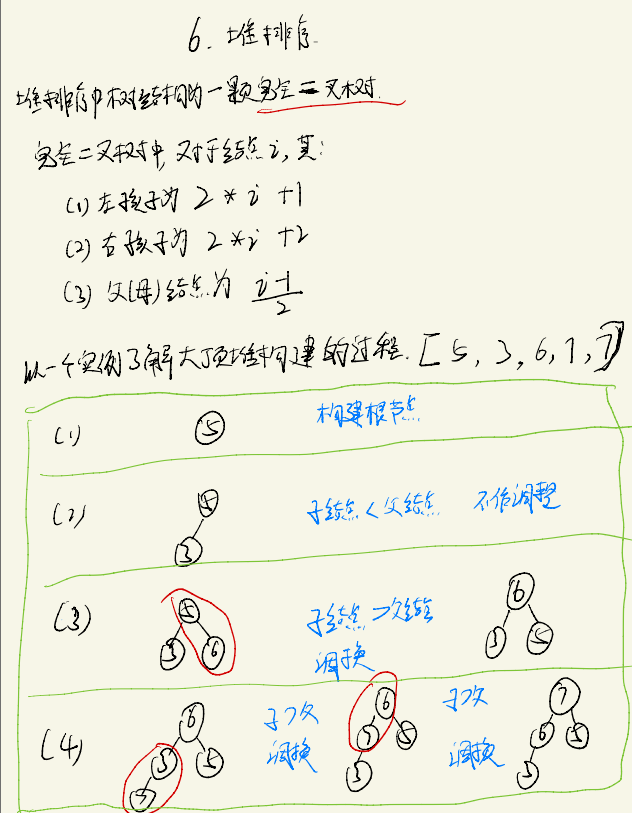 6. 堆排序
堆排序中树结构为一颗完全二叉树.
完全二叉树中, 对于结点 i, 其:
(1) 左孩子为 2 * i + 1
(2) 右孩子为 2 * i + 2
(3) 父(母)结点为 i-1/2
从一个实例了解大顶堆构建的过程. [5, 3, 6, 7, 7]
(1) 5 构建根节点
(2) 5 3 子结点 < 父结点 不作调整
(3) 5 3 6 子结点 > 父结点 调换 6 3 5
(4) 6 3 5 7 子>父 调换 6 7 5 3 子>父 调换 7 6 5 3